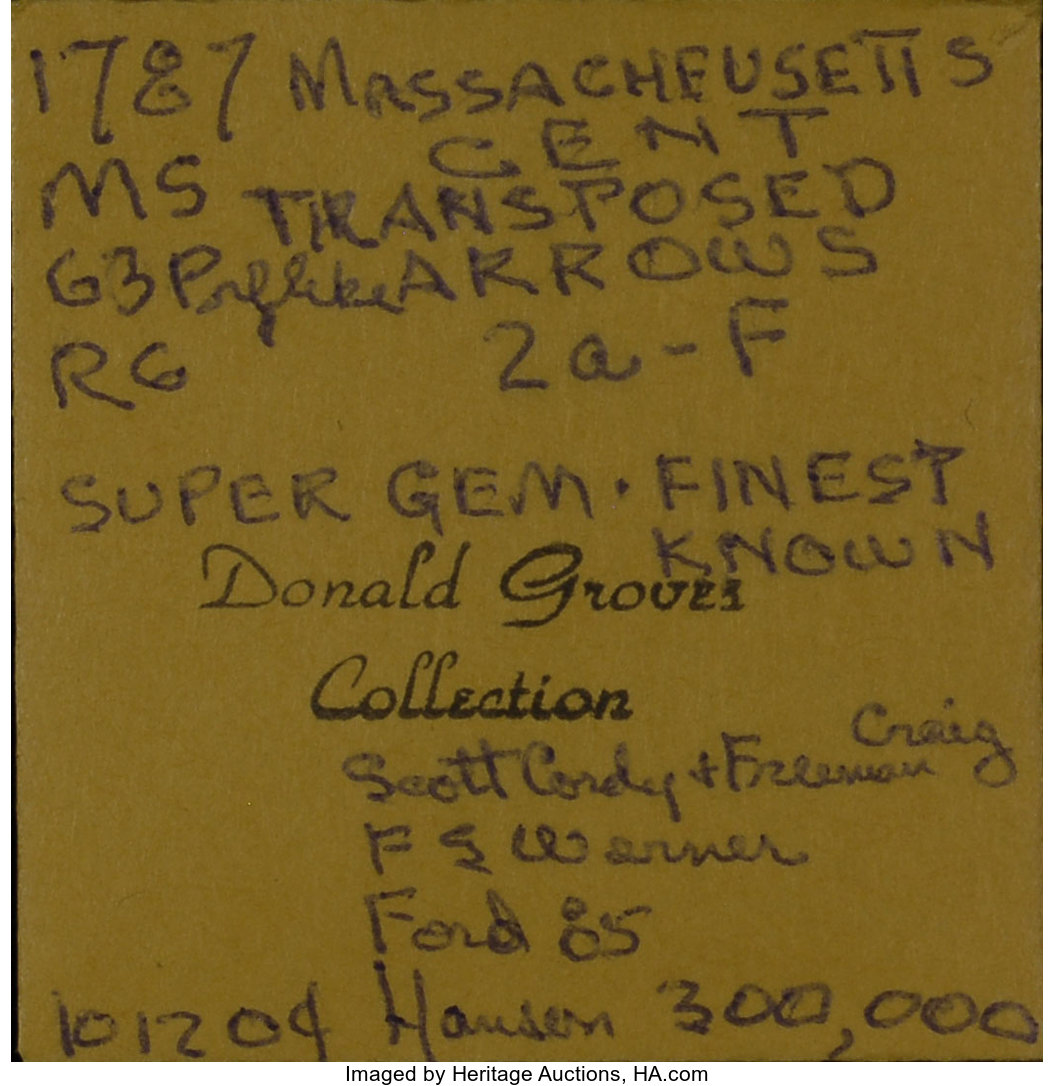 1787 MASSACHEUSETTS
CENT
MS TRANSPOSED
63 Prflike ARROWS
R6 2a-F
SUPER GEM · FINEST
KNOWN
Donald Groves
Collection
Craig
Scott Cordy + Freeman
F S Warner
Ford 85
101204 Hanson 300,000
Imaged by Heritage Auctions, HA.com